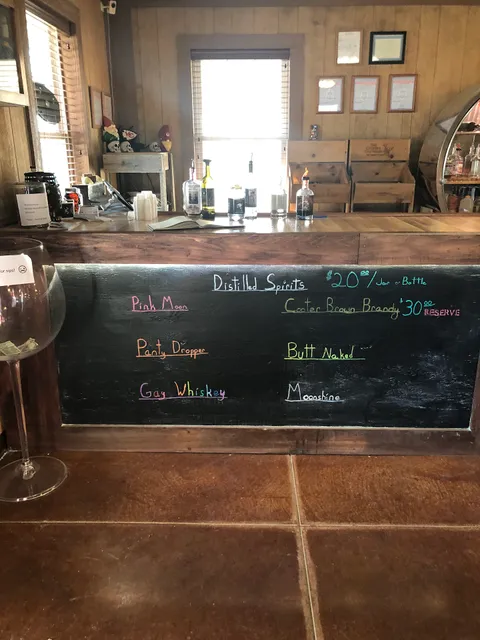 Distilled Spirits $20.00/Jar or Bottle
Pink Moon
Cooter Brown Brandy $30.00 RESERVE
Panty Dropper
Butt Naked
Gay Whiskey
Moonshine